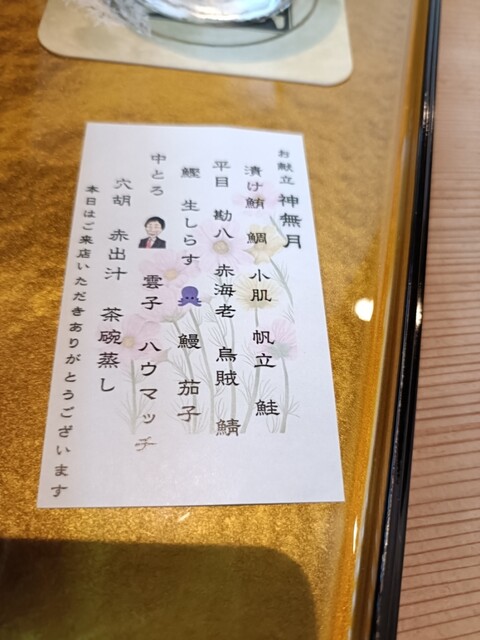 お献立 神無月
漬け鮪 鯛 小肌 帆立 鮭
平目 勘八 赤海老 烏賊 鯖
鰹 生しらす 鰻 茄子
中とろ 雲子 ハウマッチ
穴胡 赤出汁 茶碗蒸し
本日はご来店いただきありがとうございます